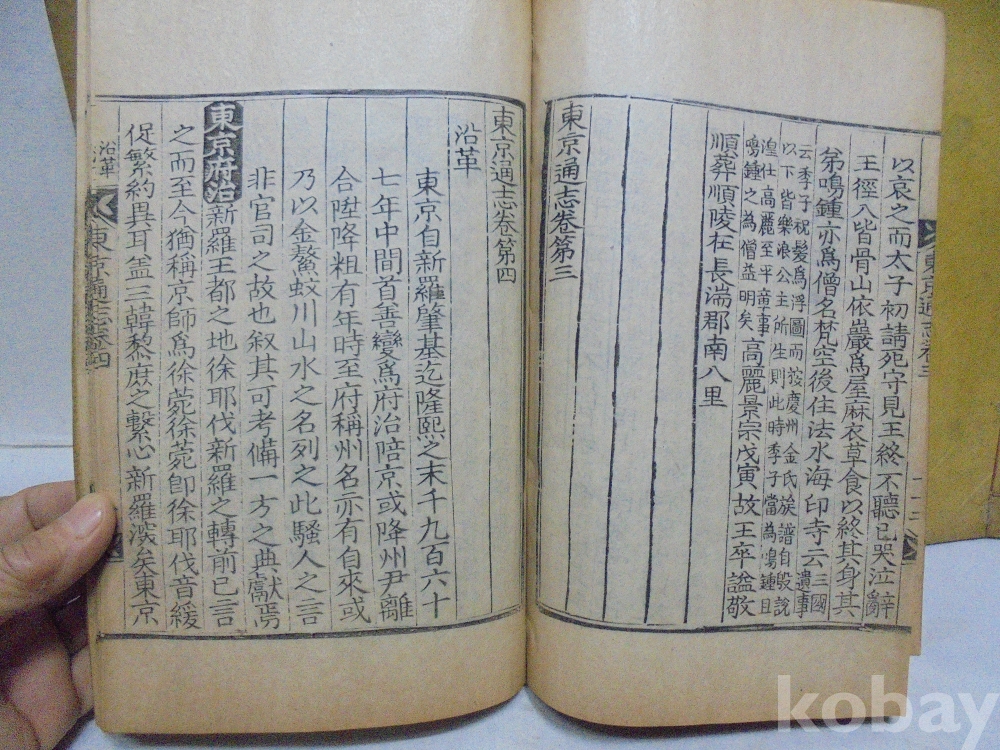 以哀之而太子初請死守見王終不聽已哭泣辭
王徑入皆骨山依巖爲屋麻衣草食以終其身其
弟鳴鍾亦爲僧名梵空後住法水海印寺云三國
遺事
云季子祝髮爲浮圖而按慶州金氏族譜自毁說
以下皆樂浪公主所生則此時季子當為鳴鍾且
湟仕高麗至平章事
鳴鍾之為僧益明矣高麗景宗戊寅故王卒謚敬
順葬順陵在長湍郡南八里
東京通志卷第三
東京通志卷三
東京通志卷第四
沿革
東京自新羅肇基迄隆熙之末千九百六十
七年中間首善變爲府治陪京或降州尹離
合陞降粗有年時至府稱州名亦有自來或
乃以金鰲蚊川山水之名列之此騷人之言
非官司之故也叙其可考備一方之典獻焉
東京府治新羅王都之地徐耶伐新羅之轉前已言
之而至今猶稱京師爲徐菀徐菀卽徐耶伐音緩
促繁約異耳盖三韓黎庶之繫心新羅深矣東京
沿革
東京通志卷四
kobay